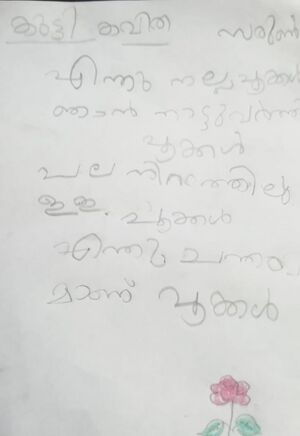 കുട്ടി കവിത സരുൺ
എന്തു നല്ല പൂക്കൾ
ഞാൻ നാട്ടുവളർത്ത
പൂക്കൾ
പല നിറത്തിലു
ഈ പൂക്കൾ
എന്തു ചന്ത
മാണ് പൂക്കൾ